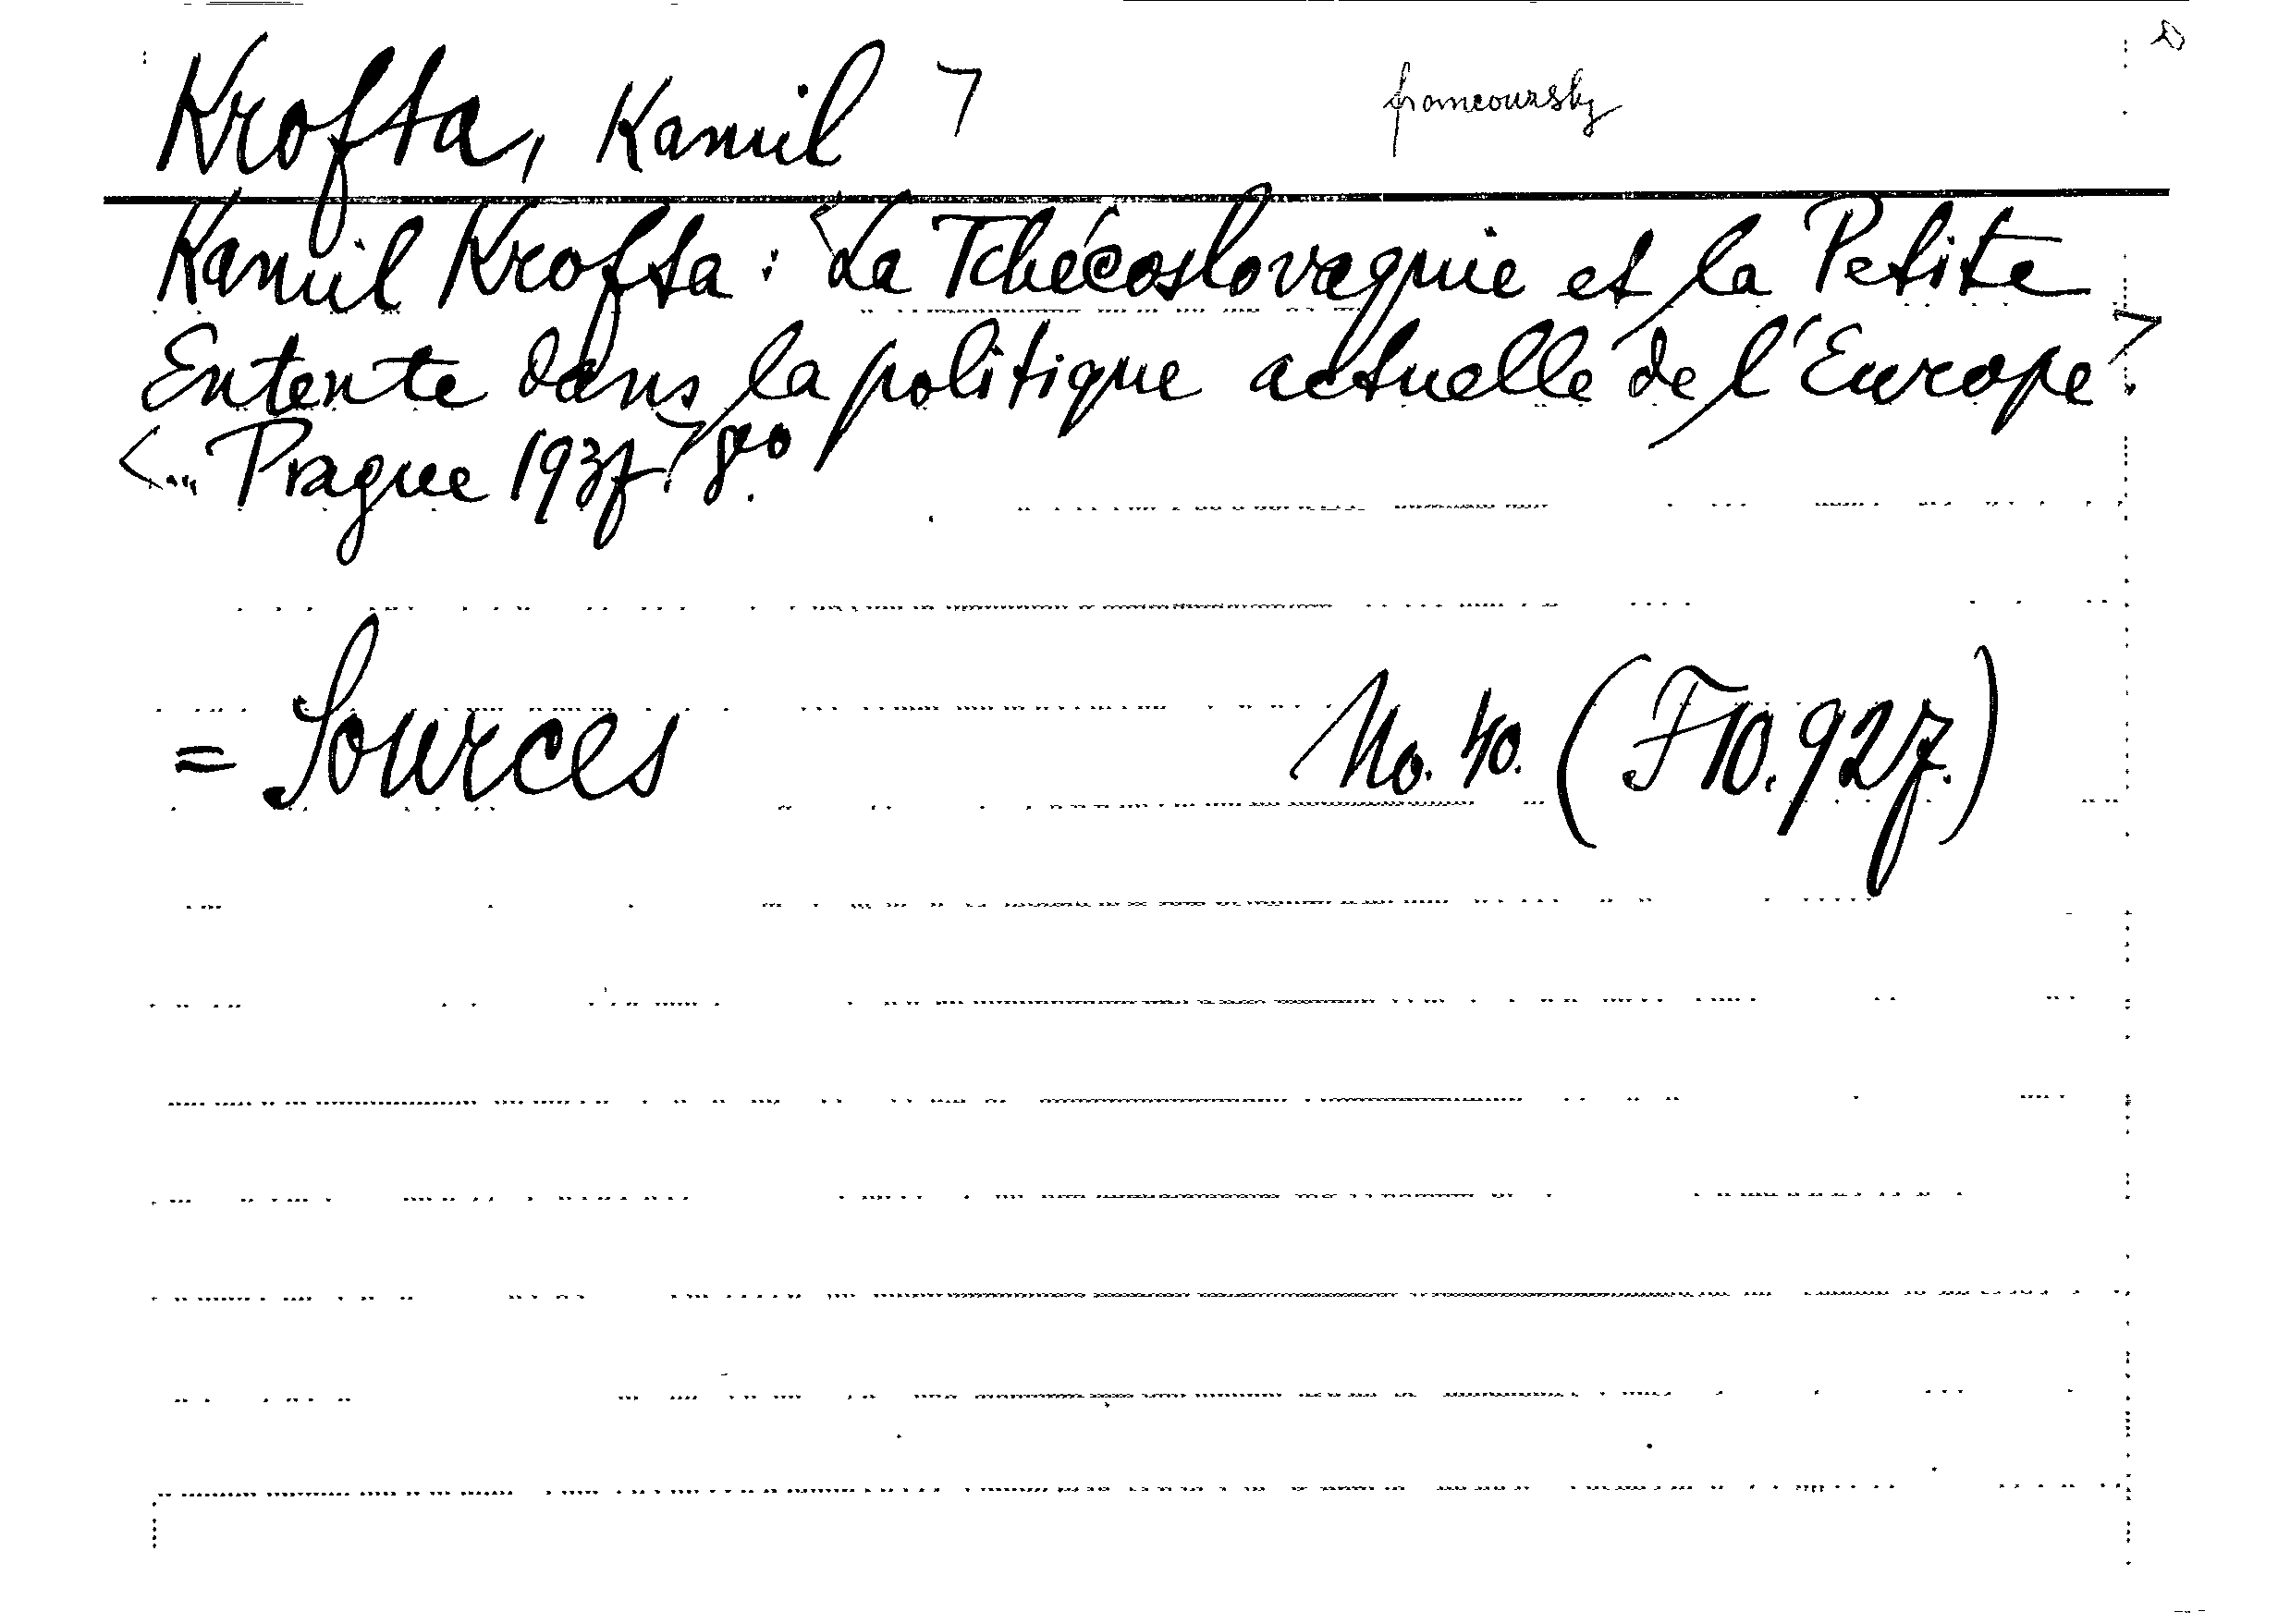 Krofta, Kamil ㄱ francouzsky
Kamil Krofta: La Tchécoslovaquie et la Petite
Entente dans la politique actuelle de l'Europe
<... Prague 1937.> 8vo.
= Sources No. 40. (F 10.927.)